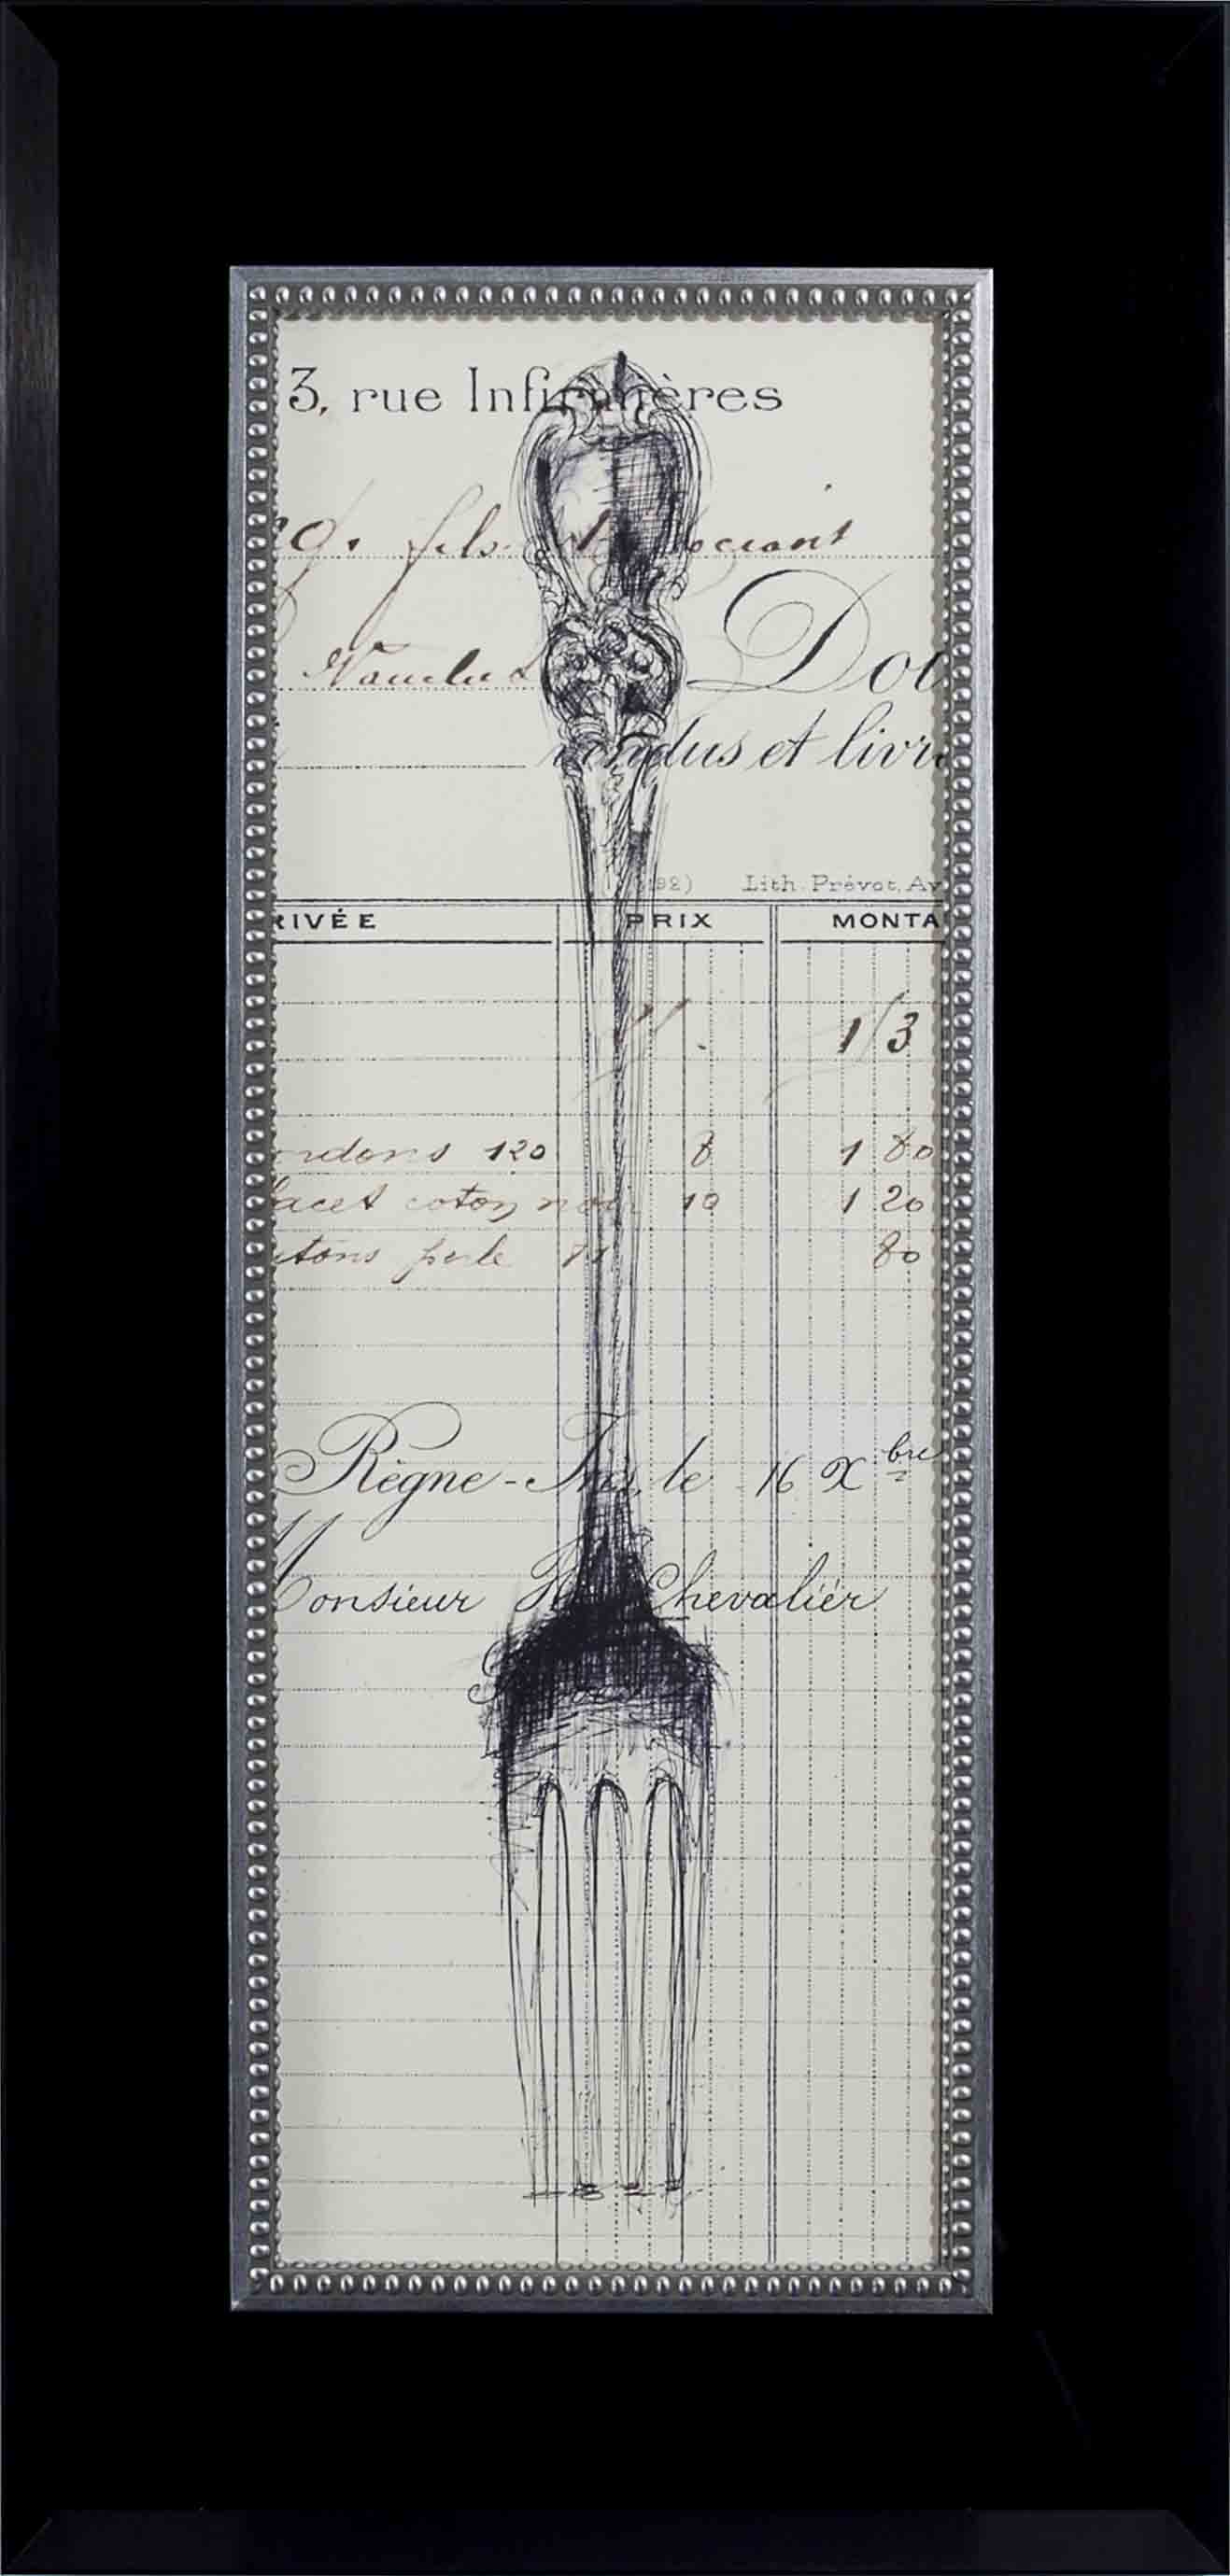 3, rue Infirmières
fils
Vaucluse Dou
vendus et livré
92) Lith. Prévot, Av
RIVÉE PRIX MONTA
1 3
120 8 1 80
lacet coton noir 10 1 20
tons perle 80
Règne- le 16 X bre
Monsieur Chevalier